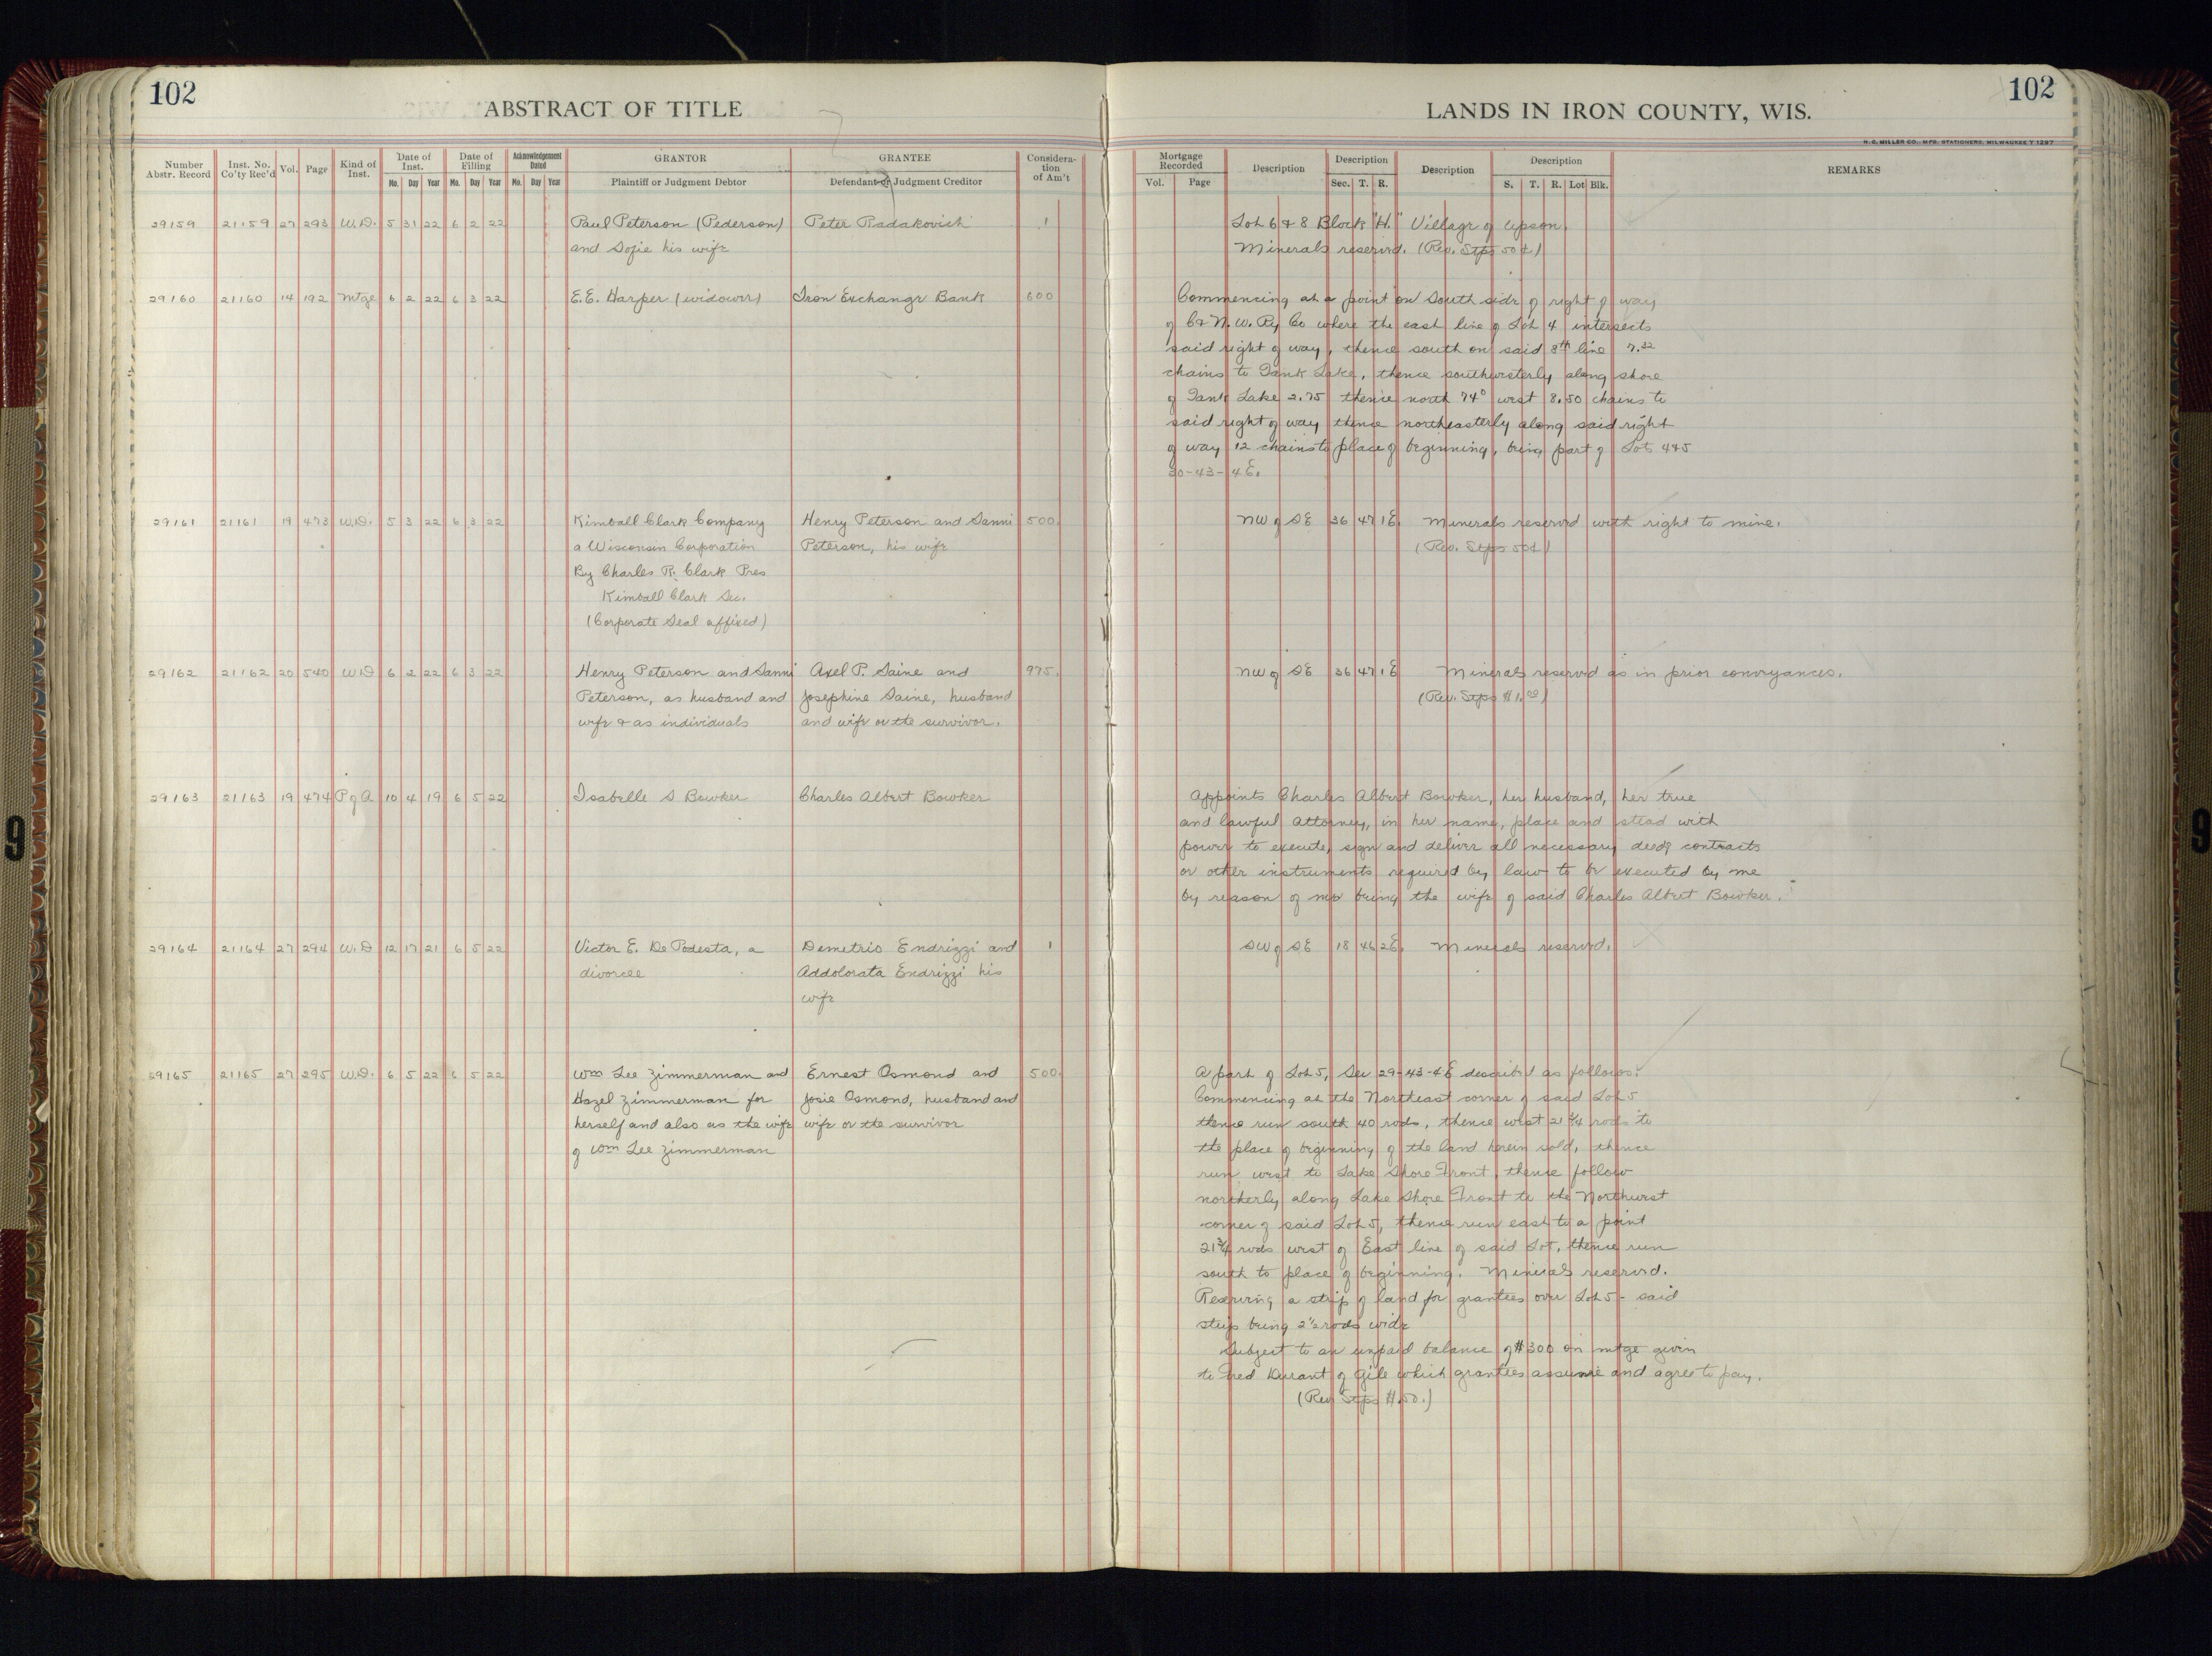 102
ABSTRACT OF TITLE
LANDS IN IRON COUNTY, WIS.
102
H. G. MILLER CO., MFG. STATIONERS, MILWAUKEE Y 1297
Number Abstr. Record
Inst. No. Co'ty Rec'd
Vol.
Page
Kind of Inst.
Date of Inst.
Mo. Day Year
Date of Filing
Mo. Day Year
Acknowledgement Dated
Mo. Day Year
GRANTOR
Plaintiff or Judgment Debtor
GRANTEE
Defendant or Judgment Creditor
Considera-
tion
of Am't
Mortgage Recorded
Vol. Page
Description
Description
Sec. T. R.
Description
Description
S. T. R. Lot Blk.
REMARKS
29159 21159 27 293 W.D. 5 31 22 6 2 22 Paul Peterson (Pederson) Peter Radakovich 1 Lot 6 & 8 Block "H." Village of Upson.
and Sofie his wife Minerals reserved. (Rev. Stps 50¢)
29160 21160 14 192 Mtge 6 2 22 6 3 22 E.E. Harper (widower) Iron Exchange Bank 600 Commencing at a point on South side of right of way
of C & N. W. Ry Co where the east line of Lot 4 intersects
said right of way, thence south on said 8th line 7.32
chains to Tank Lake, thence southwesterly along shore
of Tank Lake 2.75 thence north 74° west 8.50 chains to
said right of way thence northeasterly along said right
of way 12 chains to place of beginning, being part of Lots 4&5
30-43-4E.
29161 21161 19 473 W.D. 5 3 22 6 3 22 Kimball Clark Company Henry Peterson and Sanni 500. NW of SE 36 47 1E. Minerals reserved with right to mine.
a Wisconsin Corporation Peterson, his wife (Rev. Stps 50¢)
By Charles R. Clark Pres
Kimball Clark Sec.
(Corporate Seal affixed)
29162 21162 20 540 W.D 6 2 22 6 3 22 Henry Peterson and Sanni Axel P. Saine and 975. NW of SE 36 47 1E Minerals reserved as in prior conveyances.
Peterson, as husband and Josephine Saine, husband (Rev. Stps $1.00)
wife & as individuals and wife or the survivor.
29163 21163 19 474 P of A 10 4 19 6 5 22 Isabelle S Bowker Charles Albert Bowker Appoints Charles Albert Bowker, her husband, her true
and lawful attorney, in her name, place and stead with
power to execute, sign and deliver all necessary deeds contracts
or other instruments required by law to be executed by me
by reason of me being the wife of said Charles Albert Bowker.
29164 21164 27 294 W.D 12 17 21 6 5 22 Victor E. De Podesta, a Demetrio Endrizzi and 1 SW of SE 18 46 2E. Minerals reserved.
divorcee Addolorata Endrizzi his
wife
29165 21165 27 295 W.D. 6 5 22 6 5 22 Wm Lee Zimmerman and Ernest Osmond and 500. A part of Lot 5, Sec 29-43-4E described as follows:
Hazel Zimmerman for Josie Osmond, husband and Commencing at the Northeast corner of said Lot 5
herself and also as the wife wife or the survivor thence run south 40 rods, thence west 21 3/4 rods to
of Wm Lee Zimmerman the place of beginning of the land herein sold, thence
run west to Lake Shore Front, thence follow
northerly along Lake Shore Front to the Northwest
corner of said Lot 5, thence run east to a point
21 3/4 rods west of East line of said Lot, thence run
south to place of beginning. Minerals reserved.
Reserving a strip of land for grantees over Lot 5 - said
strip being 2 1/2 rods wide
Subject to an unpaid balance of $300 on mtge given
to Fred Durant of Gile which grantees assume and agree to pay.
(Rev Stps $.50.)
9
9